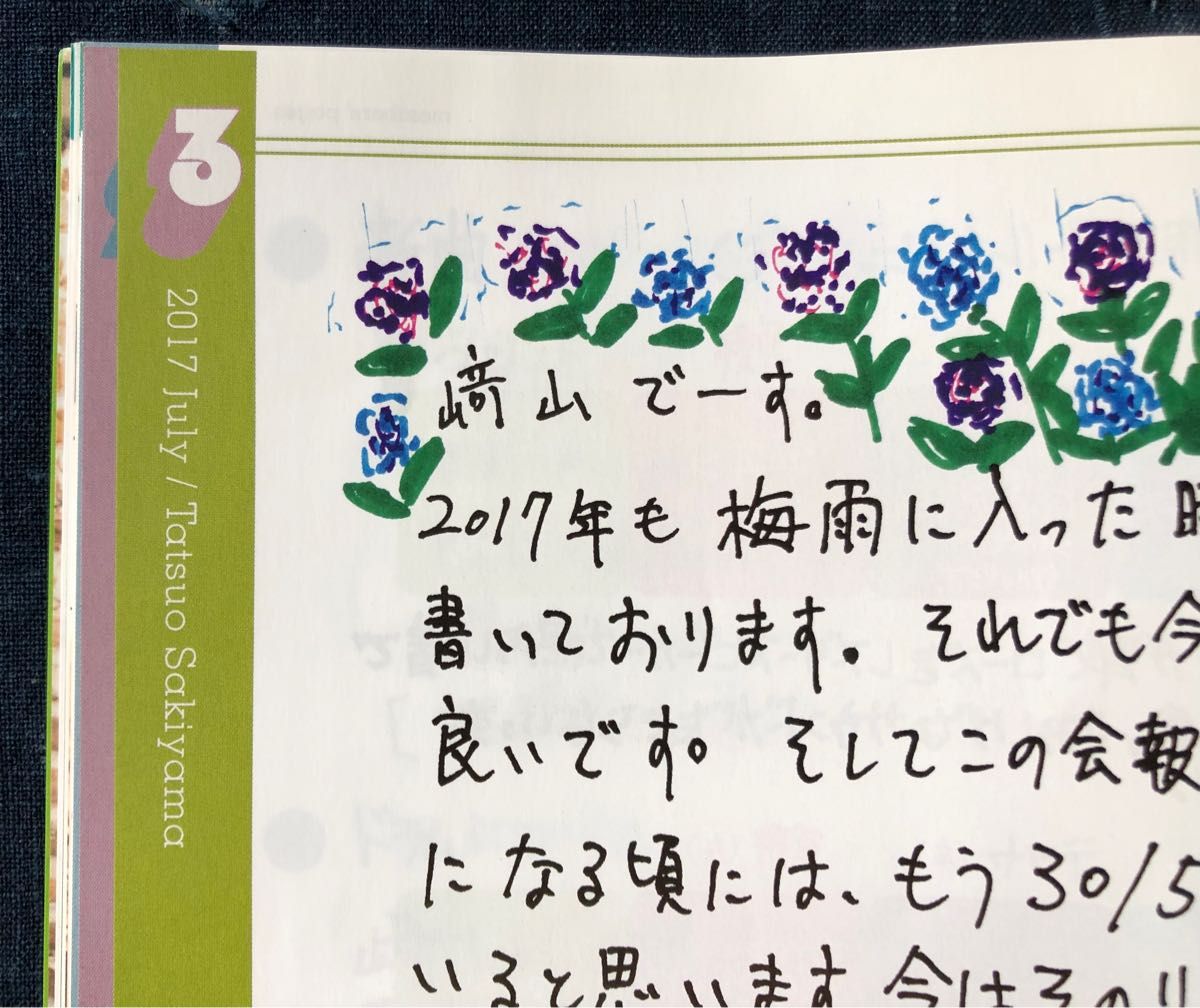 3
2017 July / Tatsuo Sakiyama
﨑山でーす。
2017年も梅雨に入った時
書いております。それでも今
良いです。そしてこの会報
になる頃には、もう30/5
いると思います 今はその